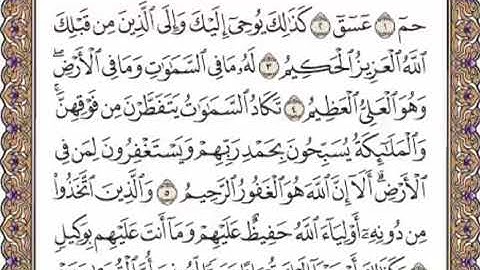 حمٓ ١ عٓسٓقٓ ٢ كَذَٰلِكَ يُوحِىٓ إِلَيْكَ وَإِلَى ٱلَّذِينَ مِن قَبْلِكَ
ٱللَّهُ ٱلْعَزِيزُ ٱلْحَكِيمُ ٣ لَهُۥ مَا فِى ٱلسَّمَٰوَٰتِ وَمَا فِى ٱلْأَرْضِ ۖ
وَهُوَ ٱلْعَلِىُّ ٱلْعَظِيمُ ٤ تَكَادُ ٱلسَّمَٰوَٰتُ يَتَفَطَّرْنَ مِن فَوْقِهِنَّ ۚ
وَٱلْمَلَٰٓئِكَةُ يُسَبِّحُونَ بِحَمْدِ رَبِّهِمْ وَيَسْتَغْفِرُونَ لِمَن فِى
ٱلْأَرْضِ ۗ أَلَآ إِنَّ ٱللَّهَ هُوَ ٱلْغَفُورُ ٱلرَّحِيمُ ٥ وَٱلَّذِينَ ٱتَّخَذُوا۟
مِن دُونِهِۦٓ أَوْلِيَآءَ ٱللَّهُ حَفِيظٌ عَلَيْهِمْ وَمَآ أَنتَ عَلَيْهِم بِوَكِيلٍ